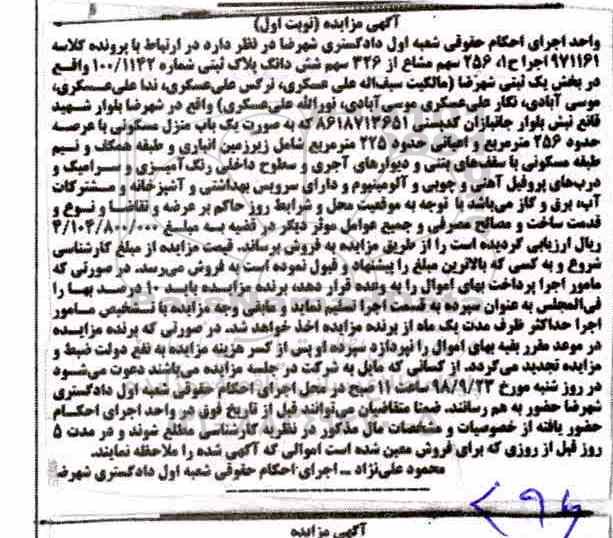 آگهی مزایده (نوبت اول)
واحد اجرای احکام حقوقی شعبه اول دادگستری شهرضا در نظر دارد در ارتباط با پرونده کلاسه
۹۷۱۱۶۱ اجرا ح۱، ۲۵۶ سهم مشاع از ۳۲۶ سهم شش دانگ پلاک ثبتی شماره ۱۰۰/۱۱۴۲ واقع
در بخش یک ثبتی شهرضا (مالکیت سیف‌اله علی عسکری، نرگس علی‌عسکری، ندا علی‌عسکری،
موسی آبادی، نگار علی‌عسکری موسی‌آبادی، نورالله علی‌عسکری) واقع در شهرضا بلوار شهید
قانع نبش بلوار جانبازان کدپستی ۸۶۱۸۷۱۳۶۵۱ که به صورت یک باب منزل مسکونی با عرصه
حدود ۲۵۶ مترمربع و اعیانی حدود ۲۲۵ مترمربع شامل زیرزمین انباری و طبقه همکف و نیم
طبقه مسکونی با سقف‌های بتنی و دیوارهای آجری و سطوح داخلی رنگ‌آمیزی و سرامیک و
درب‌های پروفیل آهنی و چوبی و آلومینیوم و دارای سرویس بهداشتی و آشپزخانه و مشترکات
آب، برق و گاز می‌باشد با توجه به موقعیت محل و شرایط روز حاکم بر عرضه و تقاضا و نوع و
قدمت ساخت و مصالح مصرفی و جمیع عوامل موثر دیگر در قضیه به مبلغ ۴/۱۰۴/۸۰۰/۰۰۰
ریال ارزیابی گردیده است را از طریق مزایده به فروش برساند. قیمت مزایده از مبلغ کارشناسی
شروع و به کسی که بالاترین مبلغ را پیشنهاد و قبول نموده است به فروش می‌رسد. در صورتی که
مامور اجرا پرداخت بهای اموال را به وعده قرار دهد، برنده مزایده باید ۱۰ درصد بها را
فی‌المجلس به عنوان سپرده به قسمت اجرا تسلیم نماید و مابقی وجه مزایده با تشخیص مامور
اجرا حداکثر ظرف مدت یک ماه از برنده مزایده اخذ خواهد شد. در صورتی که برنده مزایده
در موعد مقرر بقیه بهای اموال را نپردازد سپرده او پس از کسر هزینه مزایده به نفع دولت ضبط و
مزایده تجدید می‌گردد. از کسانی که مایل به شرکت در جلسه مزایده می‌باشند دعوت می‌شود
در روز شنبه مورخ ۹۸/۹/۲۳ ساعت ۱۱ صبح در محل اجرای احکام حقوقی شعبه اول دادگستری
شهرضا حضور به هم رسانند. ضمنا متقاضیان می‌توانند قبل از تاریخ فوق در واحد اجرای احکام
حضور یافته از خصوصیات و مشخصات مال مذکور در نظریه کارشناسی مطلع شوند و در مدت ۵
روز قبل از روزی که برای فروش معین شده است اموالی که آگهی شده را ملاحظه نمایند.
محمود علی‌نژاد ـ اجرای احکام حقوقی شعبه اول دادگستری شهرضا
آگهی مزایده